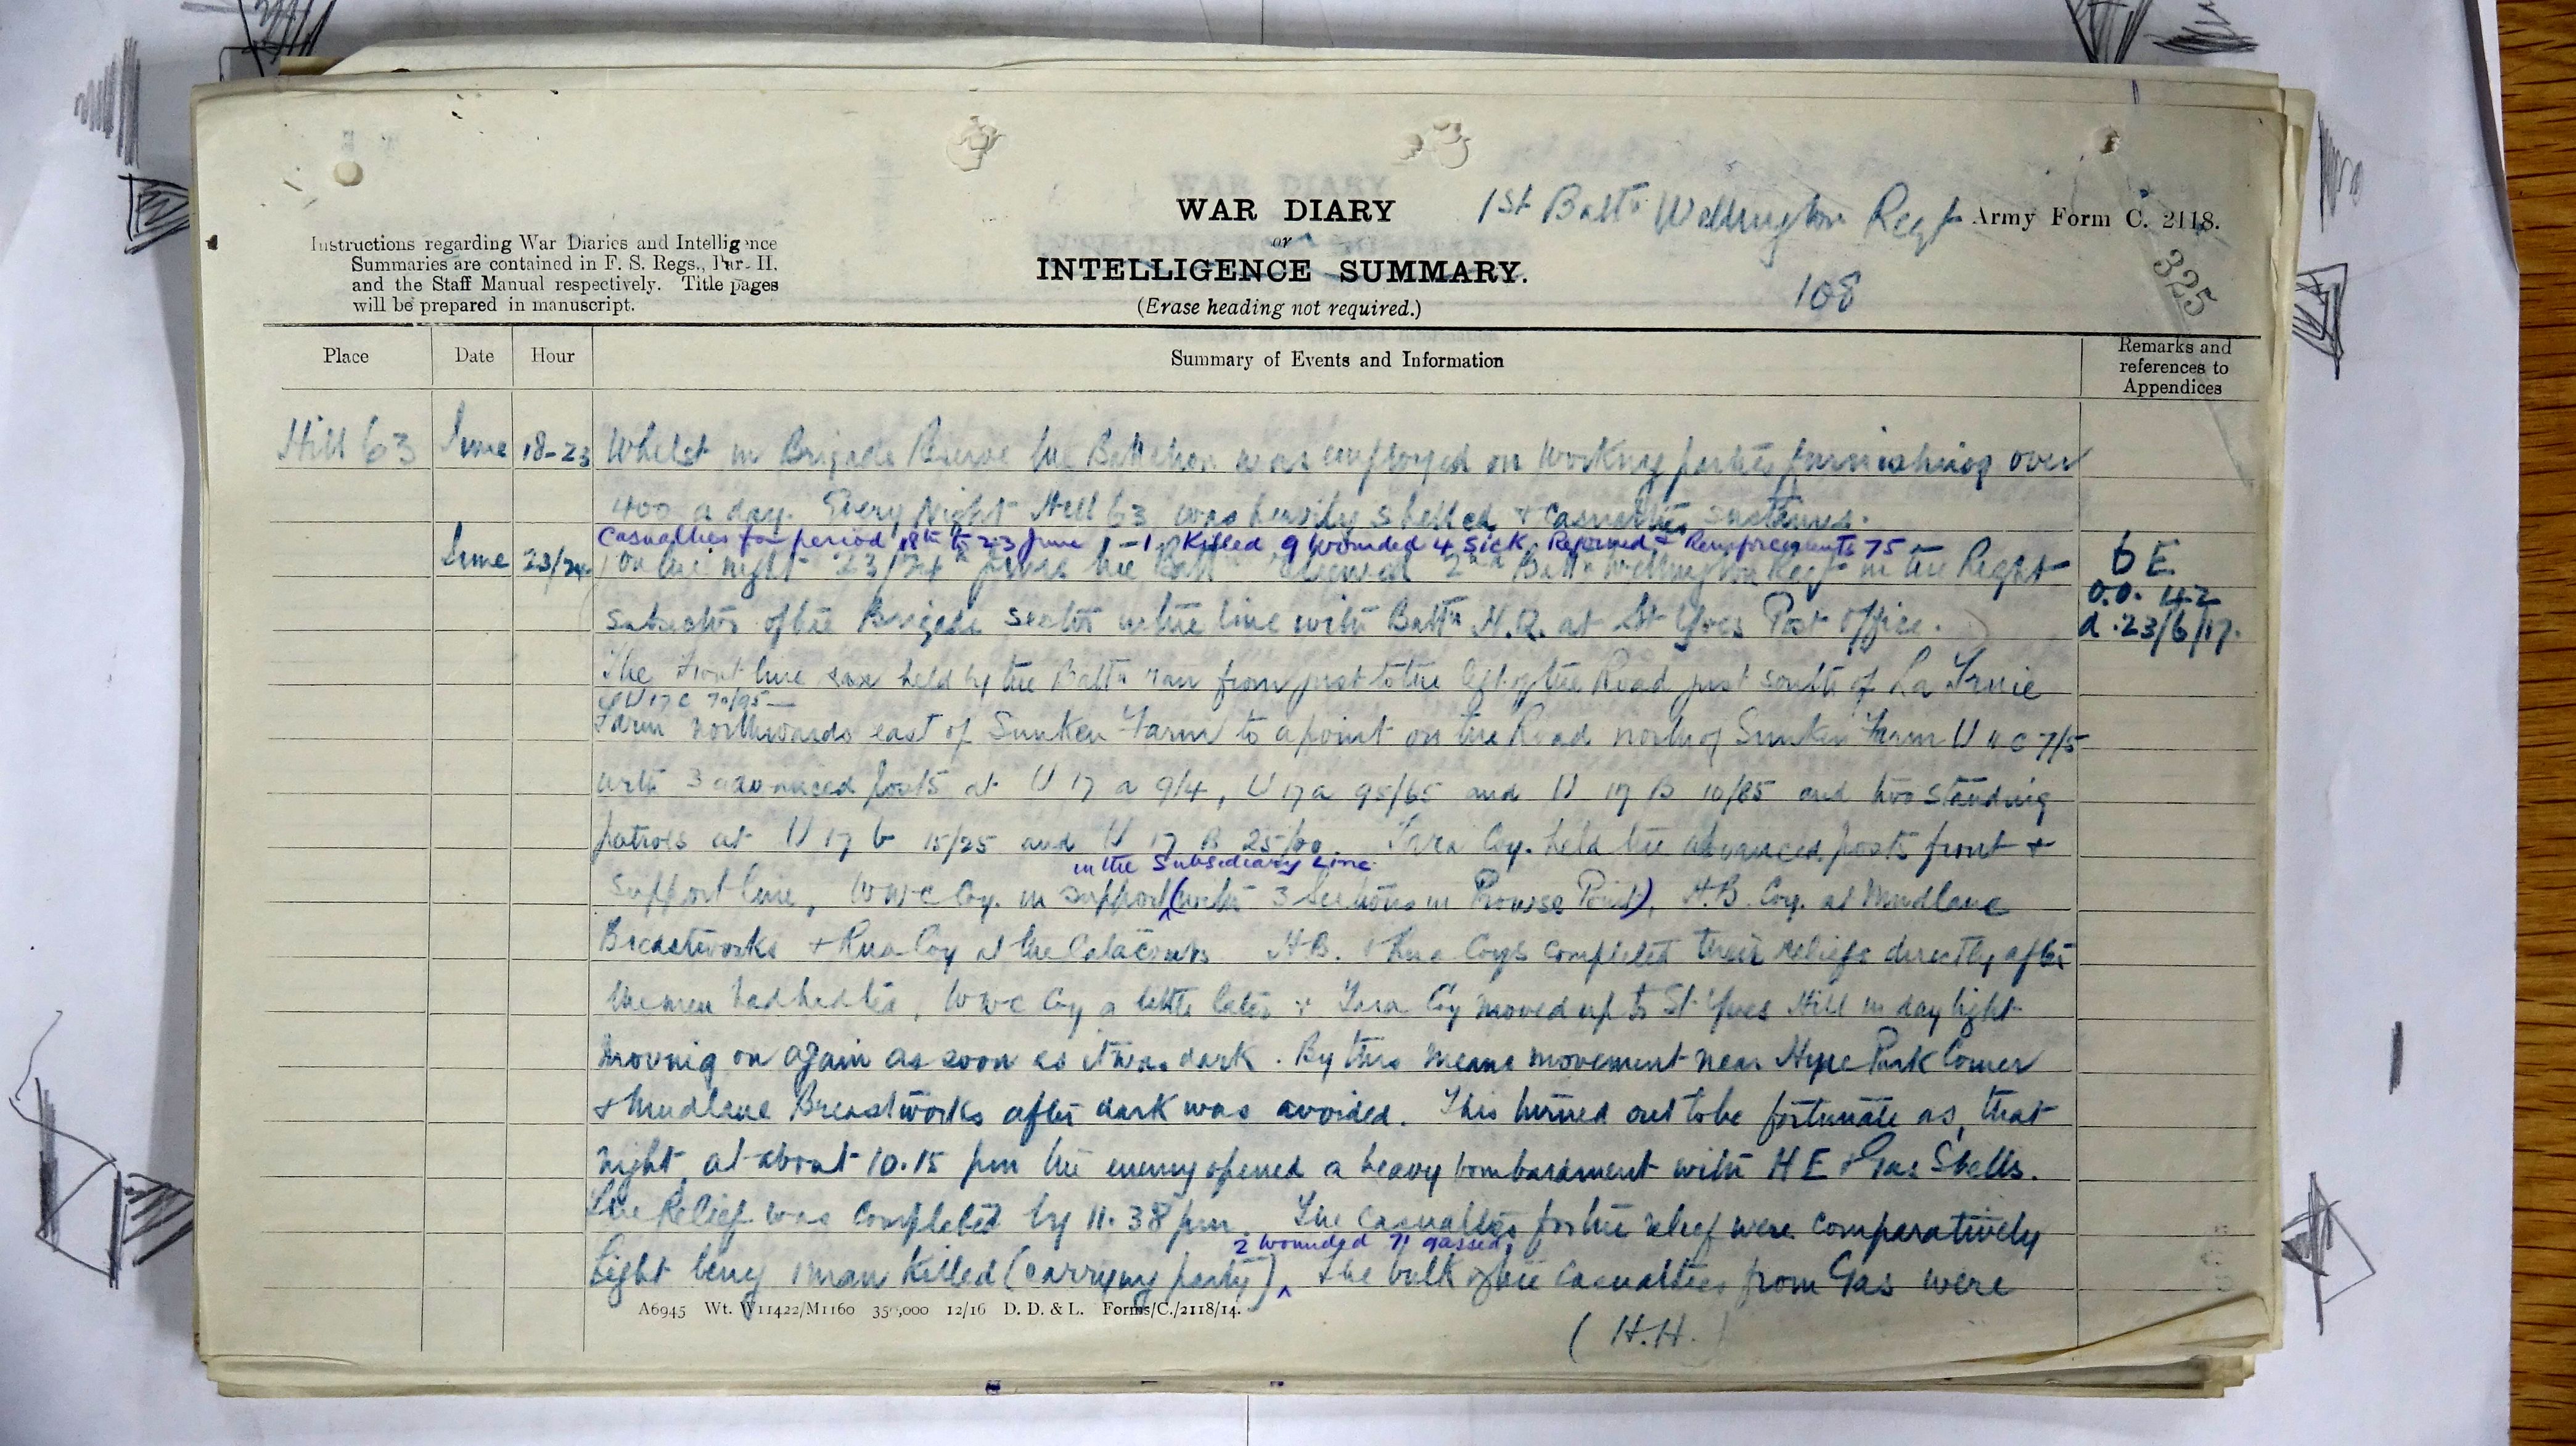 WAR DIARY
or
INTELLIGENCE SUMMARY.
(Erase heading not required.)
1st Battn Wellington Regt
Army Form C. 2118.
108
325
Instructions regarding War Diaries and Intelligence
Summaries are contained in F. S. Regs., Par. II.
and the Staff Manual respectively. Title pages
will be prepared in manuscript.
Place Date Hour Summary of Events and Information Remarks and references to Appendices
Hill 63 June 18-23 Whilst in Brigade Reserve the Battalion was employed on working parties furnishing over
400 a day. Every Night Hill 63 was heavily shelled & casualties sustained.
Casualties for period 18th to 23 June 1 Killed 9 wounded 4 sick. Rejoined & Reinforcements 75
June 23/24 On the night 23/24th June the Battn relieved 2nd Battn Wellington Regt in the Right
6E
O.O. 42
d. 23/6/17.
subsector of the Brigade sector in the line with Battn H.Q. at St Yves Post Office.
The Front line held by the Battn ran from just to the left of the Road just south of La Truie
U 17 c 70/95
Farm northwards east of Sunken Farm to a point on the Road north of Sunken Farm U 11 c 7/5
with 3 advanced posts at U 17 a 9/4, U 17 a 95/65 and U 17 B 10/85 and two standing
patrols at U 17 b 15/25 and U 17 B 25/60. Tara Coy. held the advanced posts front &
in the Subsidiary Line
support line, WWC Coy. in support (with 3 Sections in Prowse Point), H.B. Coy. at Mudlane
Breastworks & Rua Coy at the Catacombs H.B. & Rua Coys completed their reliefs directly after
the men had had tea, WWC Coy a little later & Tara Coy moved up to St Yves Hill in daylight
moving on again as soon as it was dark. By this means movement near Hyde Park Corner
& Mudlane Breastworks after dark was avoided. This turned out to be fortunate as, that
night, at about 10.15 pm the enemy opened a heavy bombardment with H E & Gas Shells.
The Relief was completed by 11.38 pm. The casualties for the relief were comparatively
2 wounded 71 gassed
light being 1 man killed (carrying party) the bulk of the casualties from Gas were
A6945 Wt. W11422/M1160 350,000 12/16 D. D. & L. Forms/C./2118/14.
(H.H.)